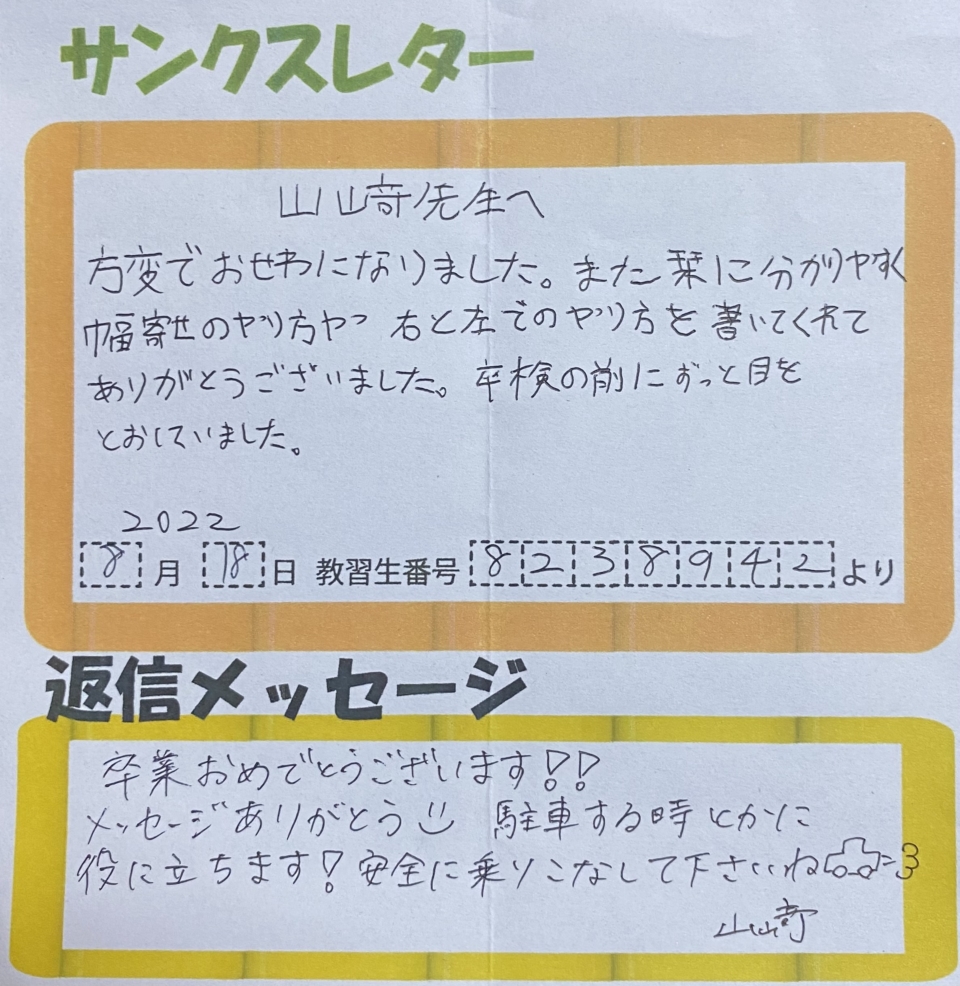 サンクスレター
山崎先生へ
方変でおせわになりました。また栞に分かりやすく
幅寄せのやり方やつ 右と左でのやり方を書いてくれて
ありがとうございました。卒検の前にずっと目を
とおしていました。
2022
8月 18日 教習生番号 8238942 より
返信メッセージ
卒業おめでとうございます!!
メッセージありがとう 駐車する時とかに
役に立ちます!安全に乗りこなして下さいね =3
山崎